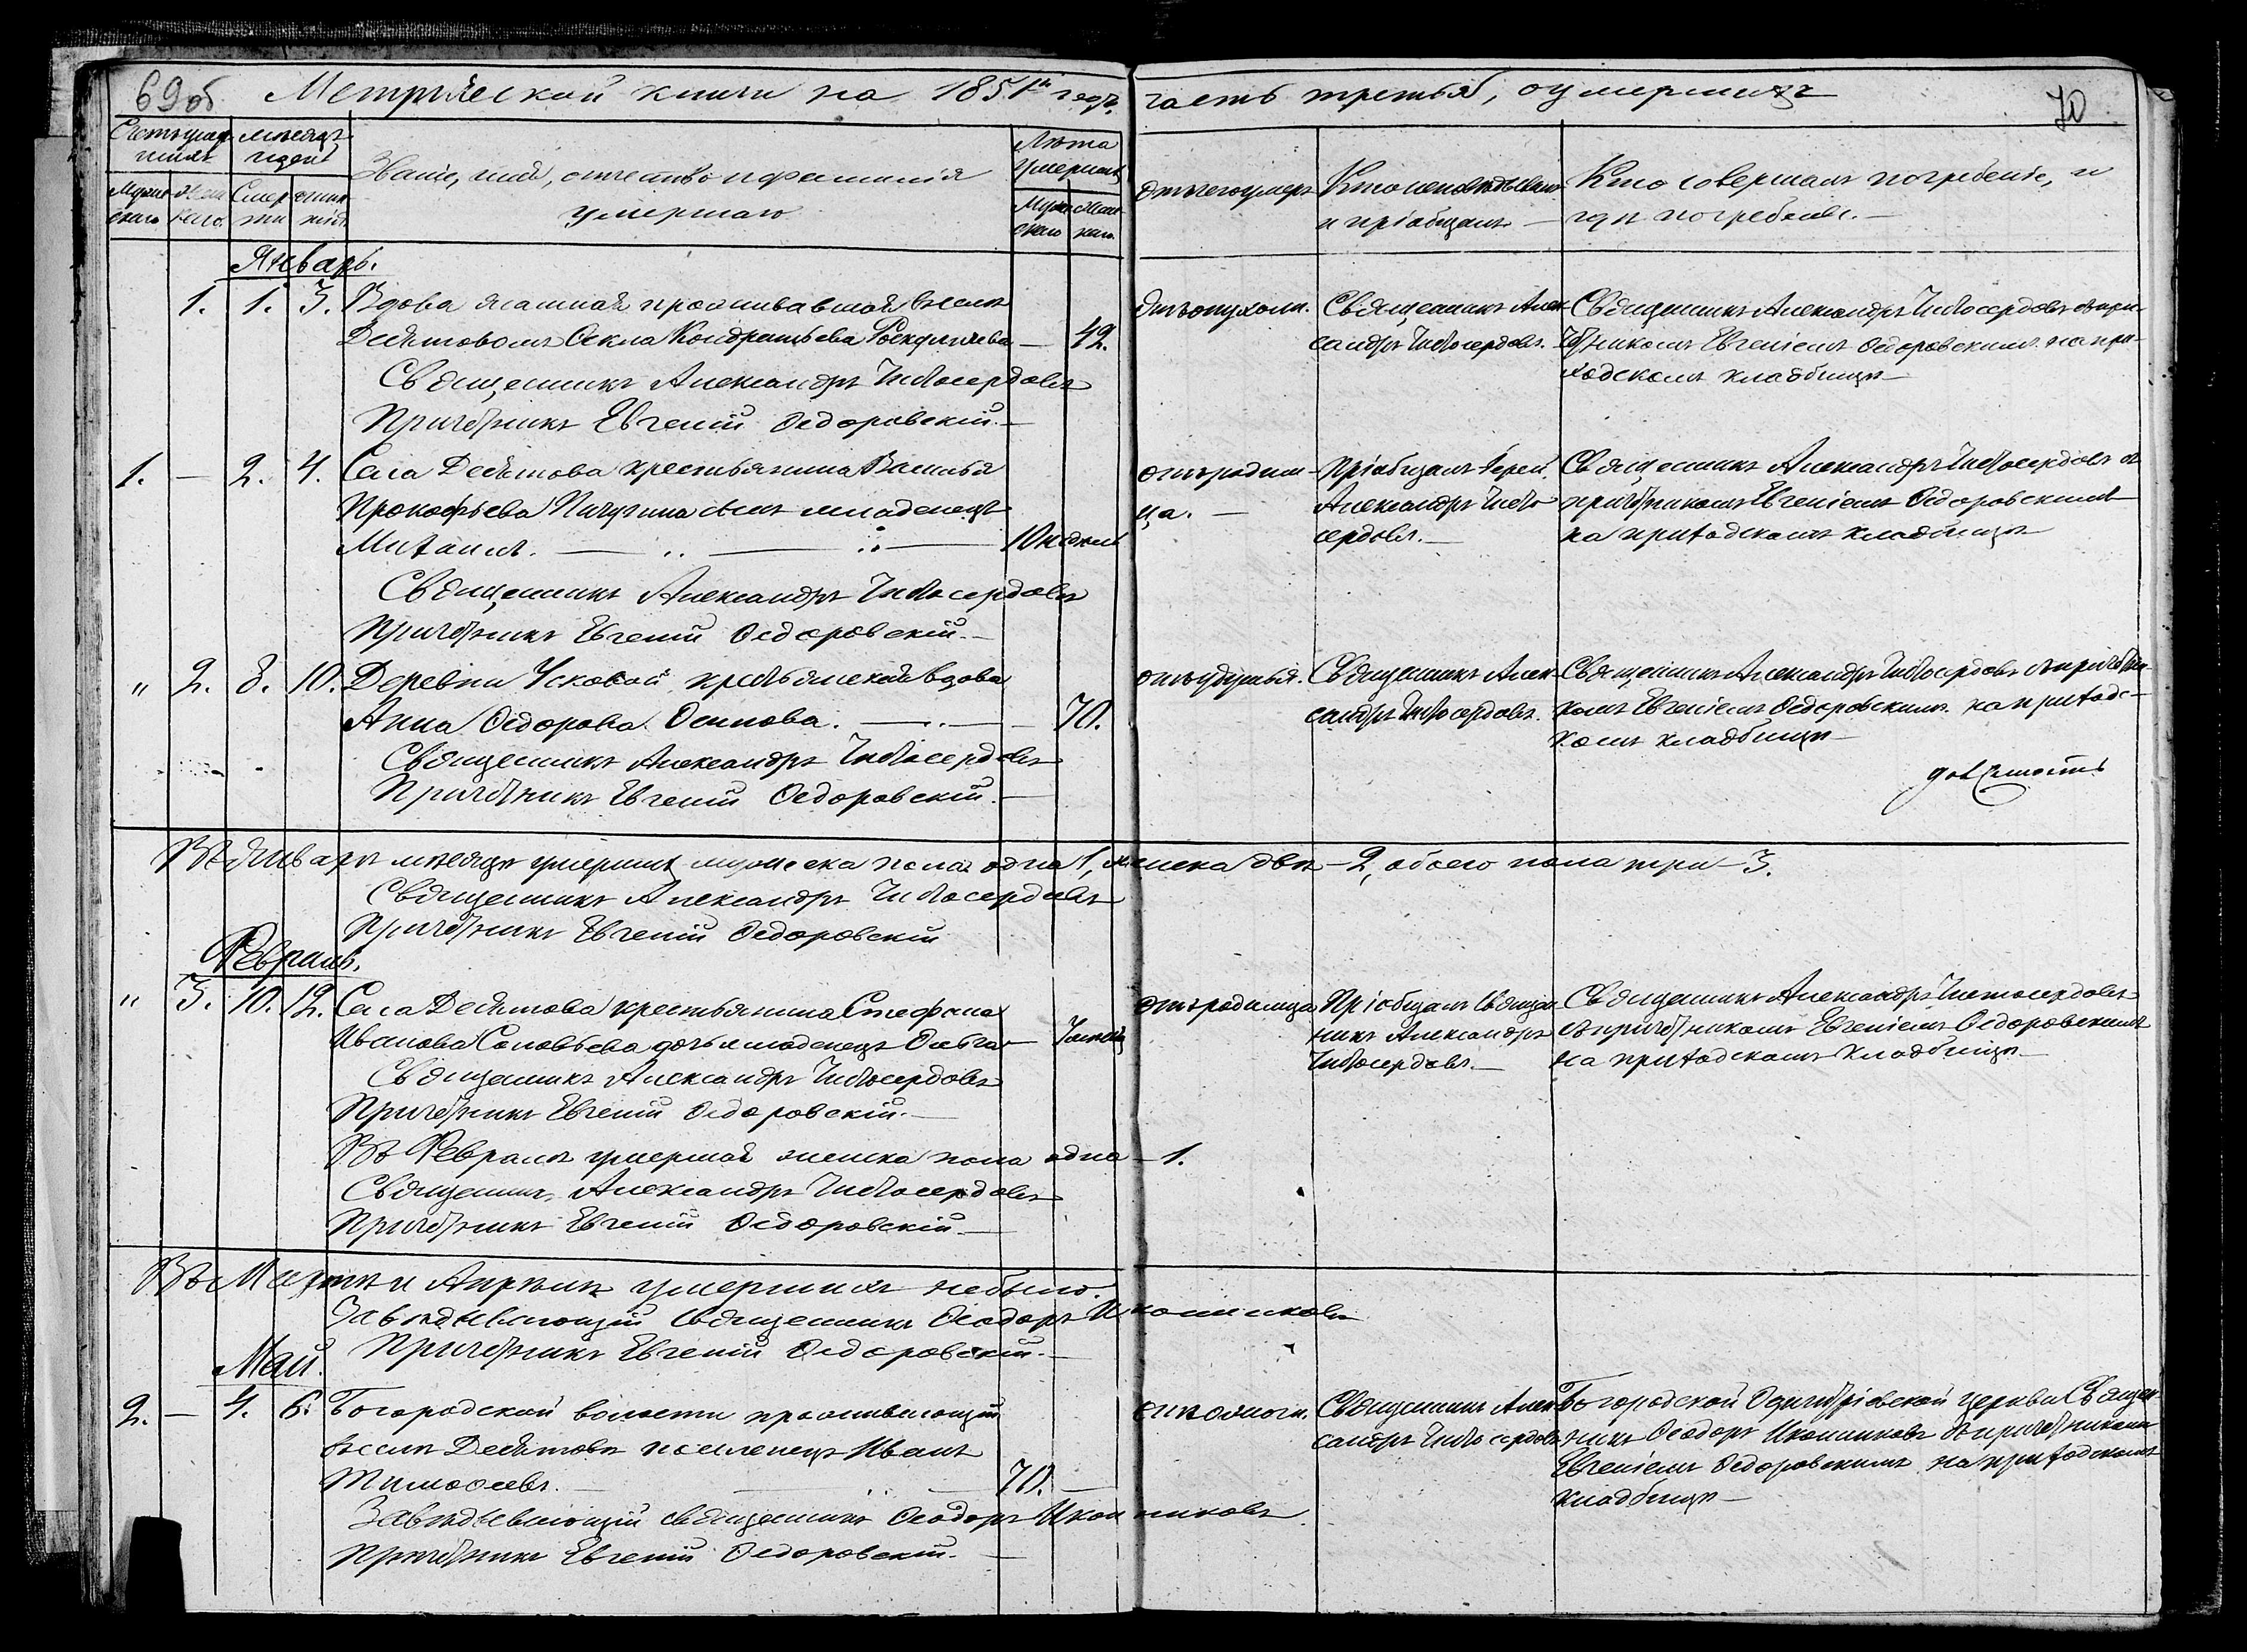 69об Метрической книги на 1851й годъ
часть третья, оумершихъ
70
Счетъ умершихъ
Мѣсяцъ и день
Званіе, имя, отчество и фамилія умершаго
Лѣта умершихъ
Мужескаго
Женскаго
Смерти
Мужескаго
Женскаго
отъ чего умеръ
Кто исповѣдывалъ и пріобщалъ
Кто совершалъ погребеніе, и гдѣ погребены.
Январь.
1. 1. 3. Вдова проживавшая въ селѣ
Десятовомъ Ѳекла Кондратьева — 42.
Священникъ Александръ Чистосердовъ
Причетникъ Евгеній Ѳедоровскій.
отъ опухоли.
Священникъ Александръ Чистосердовъ.
Священникъ Александръ Чистосердовъ съ причетникомъ Евгеніемъ Ѳедоровскимъ на приходскомъ кладбищѣ
1. — 2. 4. Села Десятова крестьянина Василья
Прокофьева Пичугина сынъ младенецъ
Михаилъ. — 10 недѣль
Священникъ Александръ Чистосердовъ
Причетникъ Евгеній Ѳедоровскій.
отъ родимца.
Пріобщалъ Іерей Александръ Чистосердовъ.
Священникъ Александръ Чистосердовъ съ
причетникомъ Евгеніемъ Ѳедоровскимъ
на приходскомъ кладбищѣ
" 2. 8. 10. Деревни Усковой крестьянская вдова
Анна Ѳедорова Осипова. — 70.
Священникъ Александръ Чистосердовъ
Причетникъ Евгеній Ѳедоровскій.
отъ удушья.
Священникъ Александръ Чистосердовъ.
Священникъ Александръ Чистосердовъ съ причетникомъ Евгеніемъ Ѳедоровскимъ на приходскомъ кладбищѣ
Въ Январѣ мѣсяцѣ умершихъ мужеска пола одна 1, женска двѣ — 2, обоего пола три — 3.
Священникъ Александръ Чистосердовъ
Причетникъ Евгеній Ѳедоровскій
Февраль.
" 3. 10. 12. Села Десятова крестьянина Стефана
Иванова Соловьева дочь младенецъ Ольга —
Священникъ Александръ Чистосердовъ
Причетникъ Евгеній Ѳедоровскій.
отъ родимца
Пріобщалъ Священникъ Александръ Чистосердовъ.
Священникъ Александръ Чистосердовъ
съ причетникомъ Евгеніемъ Ѳедоровскимъ
на приходскомъ кладбищѣ
Въ Февралѣ умершая женска пола одна — 1.
Священникъ Александръ Чистосердовъ
Причетникъ Евгеній Ѳедоровскій
Въ Мартѣ и Апрѣлѣ умершихъ небыло.
Завѣдывающій священникъ Ѳеодоръ Иконниковъ
Причетникъ Евгеній Ѳедоровскій.
Май.
2. — 4. 6. Богородской волости проживающій
въ селѣ Десятовѣ поселенецъ Иванъ
Тимоѳеевъ. — 70.
Завѣдывающій священникъ Ѳеодоръ Иконниковъ
Причетникъ Евгеній Ѳедоровскій.
Священникъ Александръ Чистосердовъ
Богородской Одигитріевской церкви Священникъ Ѳеодоръ Иконниковъ съ причетникомъ
Евгеніемъ Ѳедоровскимъ на приходскомъ
кладбищѣ